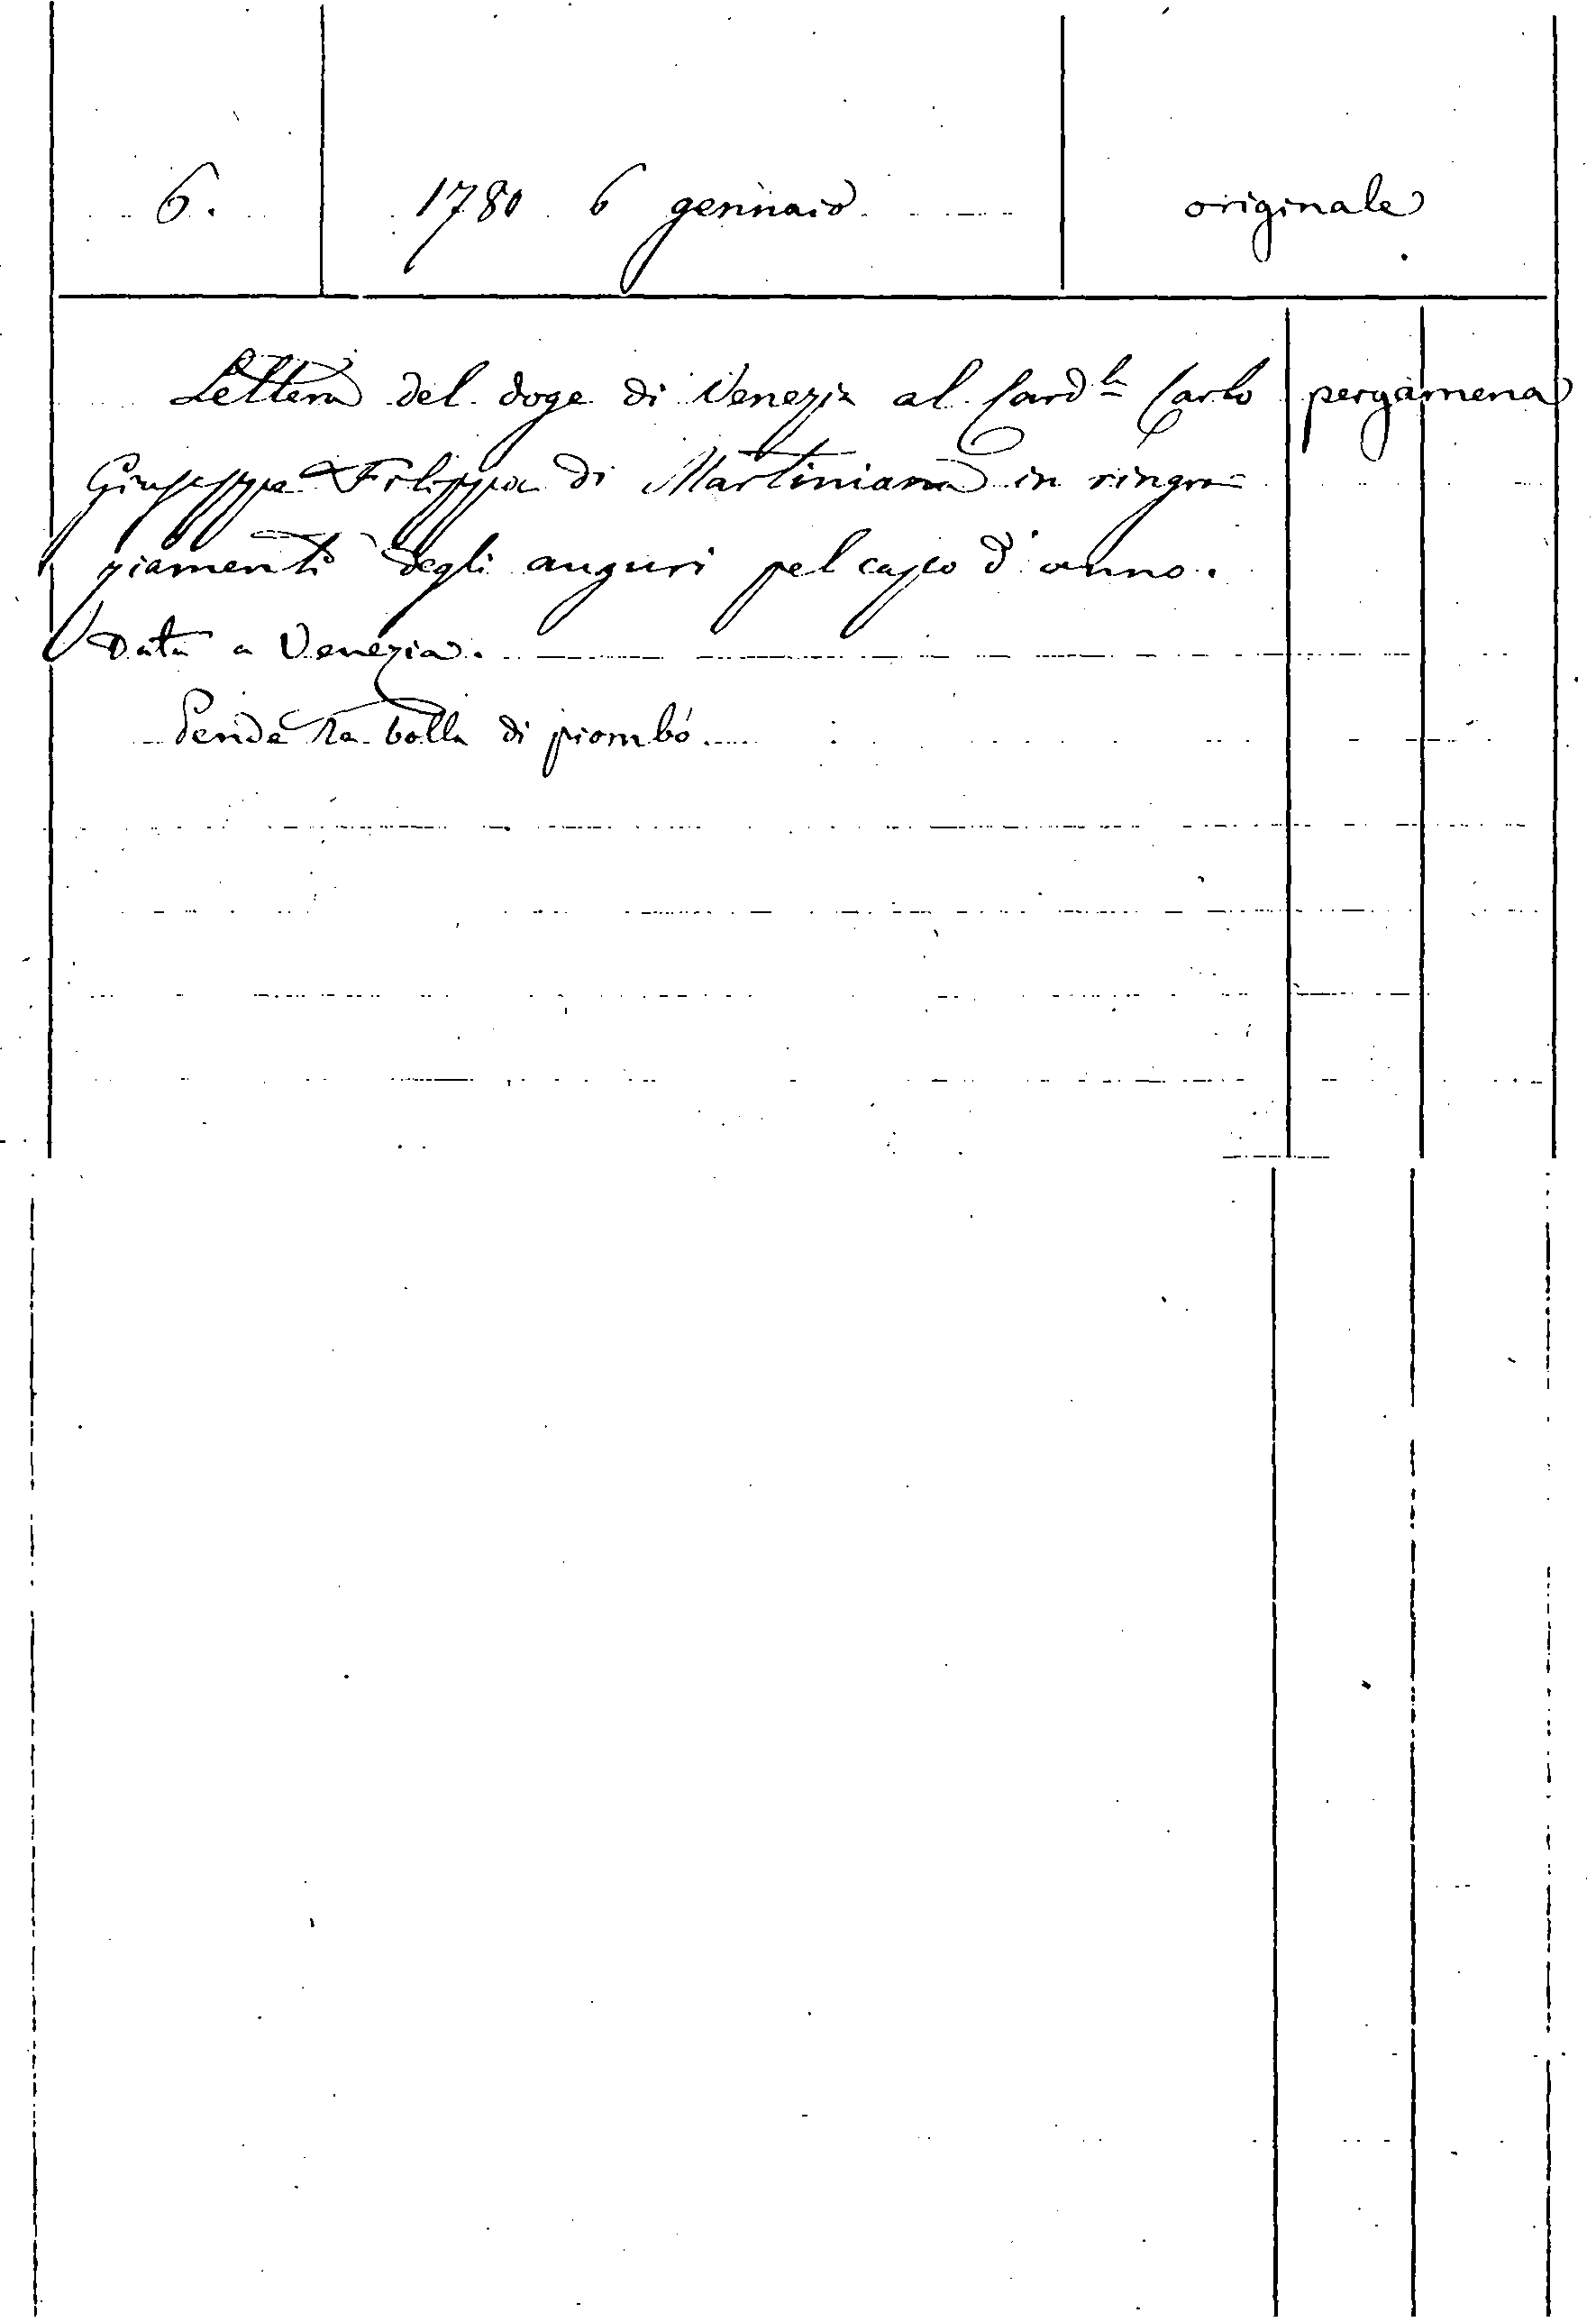 6. 1780 6 gennaio originale
Lettera del doge di Venezia al Card.le Carlo pergamena
Giuseppe Filippa di Martiniana in ringra=
ziamenti degli auguri pel capo d'anno.
Data a Venezia.
Pende la bolla di piombo.